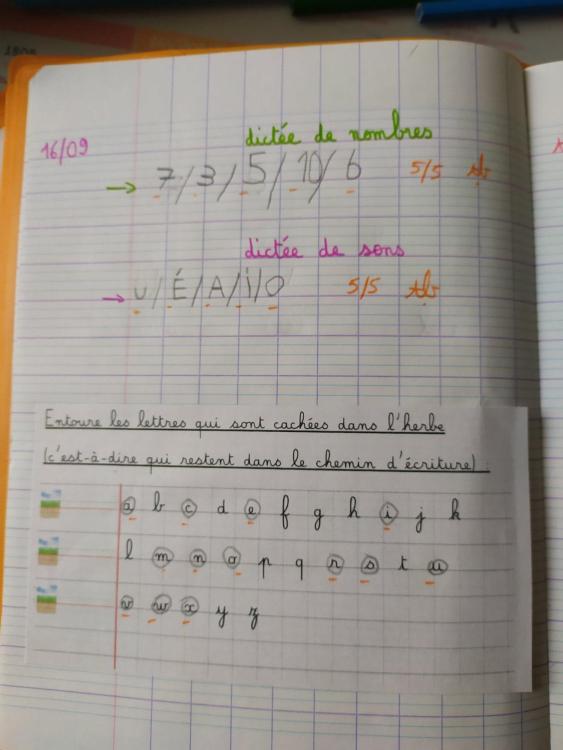 dictée de nombres
16/09
→ 7/3/5/10/6 5/5 Tb
dictée de sons
→ U/É/A/i/O 5/5 Tb
Entoure les lettres qui sont cachées dans l'herbe
(c'est-à-dire qui restent dans le chemin d'écriture)
a b c d e f g h i j k
l m n o p q r s t u
v w x y z